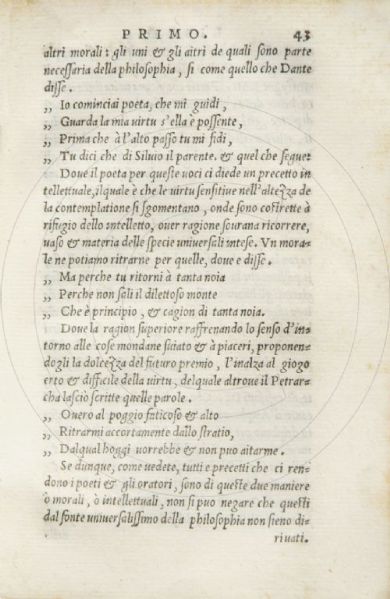 PRIMO. 43
altri morali: gli uni & gli altri de quali sono parte
necessaria della philosophia, si come quello che Dante
disse.
,, Io cominciai poeta, che mi guidi,
,, Guarda la mia uirtu s'ella è possente,
,, Prima che à l'alto passo tu mi fidi,
,, Tu dici che di Siluio il parente. & quel che segue:
Doue il poeta per queste uoci ci diede un precetto in
tellettuale, ilquale è che le uirtu sensitiue nell'altezza de
la contemplatione si sgomentano, onde sono costrette à
rifugio dello intelletto, ouer ragione sourana ricorrere,
uaso & materia delle specie uniuersali intese. Vn mora-
le ne potiamo ritrarne per quelle, doue e disse.
,, Ma perche tu ritorni à tanta noia
,, Perche non sali il dilettoso monte
,, Che è principio, & cagion di tanta noia.
Doue la ragion superiore raffrenando lo senso d'in-
torno alle cose mondane suiato & à piaceri, proponen-
dogli la dolcezza del futuro premio, l'inalza al giogo
erto & difficile della uirtu, delquale altroue il Petrar-
cha lasciò scritte quelle parole.
,, Ouero al poggio faticoso & alto
,, Ritrarmi accortamente dallo stratio,
,, Dalqual hoggi uorrebbe & non puo aitarme.
Se dunque, come uedete, tutti e precetti che ci ren-
dono i poeti & gli oratori, sono di queste due maniere
ò morali, ò intellettuali, non si puo negare che questi
dal fonte uniuersalissimo della philosophia non sieno di-
riuati.